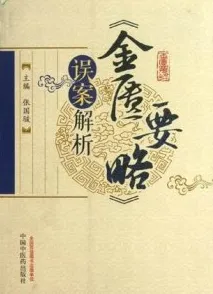 《金匮要略》
误案解析
主编 张国骏
中国中医药出版社